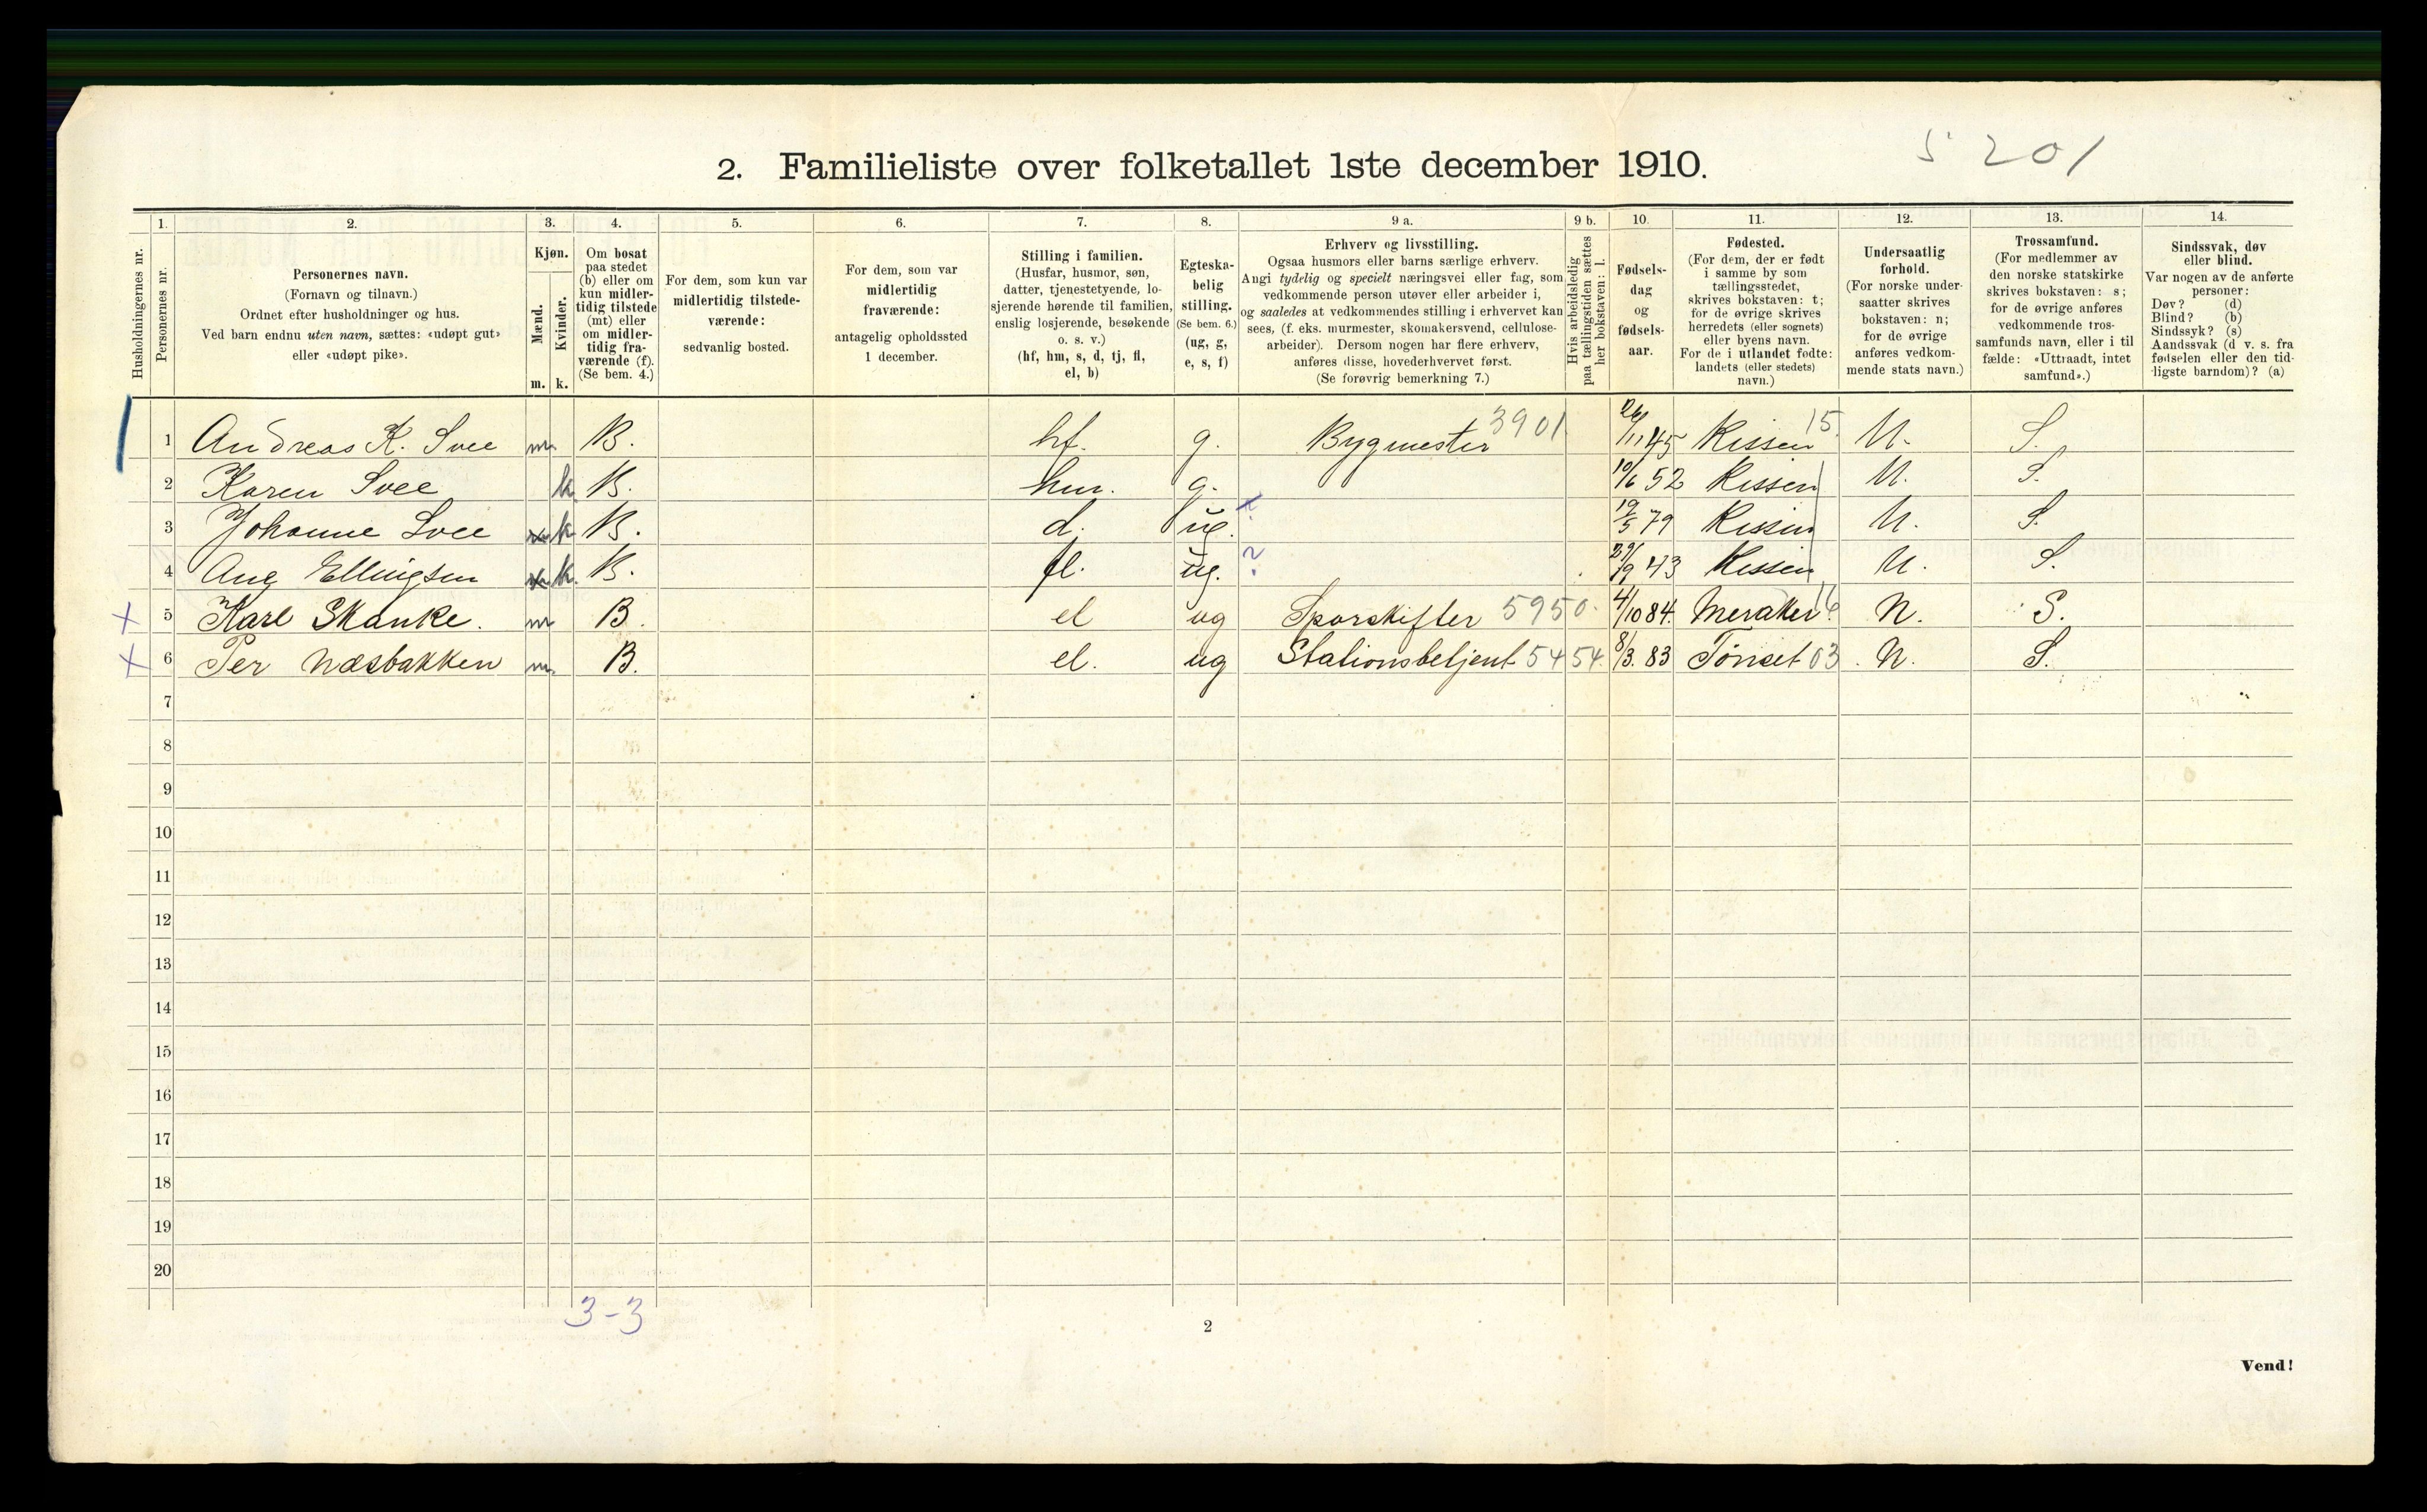 5 201
2. Familieliste over folketallet 1ste december 1910.
Husholdningernes nr.
1. Personernes nr.
2. Personernes navn. (Fornavn og tilnavn.) Ordnet efter husholdninger og hus. Ved barn endnu uten navn, sættes: «udøpt gut» eller «udøpt pike».
3. Kjøn. Mænd. m. Kvinder. k.
4. Om bosat paa stedet (b) eller om kun midlertidig tilstede (mt) eller om midlertidig fraværende (f). (Se bem. 4.)
5. For dem, som kun var midlertidig tilstedeværende: sedvanlig bosted.
6. For dem, som var midlertidig fraværende: antagelig opholdssted 1 december.
7. Stilling i familien. (Husfar, husmor, søn, datter, tjenestetyende, losjerende hørende til familien, enslig losjerende, besøkende o. s. v.) (hf, hm, s, d, tj, fl, el, b)
8. Egteskabelig stilling. (Se bem. 6.) (ug, g, e, s, f)
9 a. Erhverv og livsstilling. Ogsaa husmors eller barns særlige erhverv. Angi tydelig og specielt næringsvei eller fag, som vedkommende person utøver eller arbeider i, og saaledes at vedkommendes stilling i erhvervet kan sees, (f. eks. murmester, skomakersvend, cellulosearbeider). Dersom nogen har flere erhverv, anføres disse, hovederhvervet først. (Se forøvrig bemerkning 7.)
9 b. Hvis arbeidsledig paa tællingstiden sættes her bokstaven: l.
10. Fødselsdag og fødselsaar.
11. Fødested. (For dem, der er født i samme by som tællingsstedet, skrives bokstaven: t; for de øvrige skrives herredets (eller sognets) eller byens navn. For de i utlandet fødte: landets (eller stedets) navn.)
12. Undersaatlig forhold. (For norske undersaatter skrives bokstaven: n; for de øvrige anføres vedkommende stats navn.)
13. Trossamfund. (For medlemmer av den norske statskirke skrives bokstaven: s; for de øvrige anføres vedkommende trossamfunds navn, eller i tilfælde: «Uttraadt, intet samfund».)
14. Sindssvak, døv eller blind. Var nogen av de anførte personer: Døv? (d) Blind? (b) Sindssyk? (s) Aandssvak (d. v. s. fra fødselen eller den tidligste barndom)? (a)
1 Andreas K. Svee m B. hf. g. Bygmester 3901 26/11 45 Rissen 15 N. S.
2 Karen Svee k B. hm. g. 10/6 52 Rissen N. S.
3 Johanne Svee k B. d. ug. ? 19/5 79 Rissen N. S.
4 Ellingsen k. B. fl. ug. ? 43 Rissen N. S.
× 5 Karl Skanke. m B. el ug Sporskifter 5950 4/10 84. Meraker 16 N. S.
× 6 Per Næsbakken m. B. el. ug Stationsbetjent 5454. 8/3. 83 Tönset 03. N. S.
7
8
9
10
11
12
13
14
15
16
17
18
19
20
3-3
2
Vend!